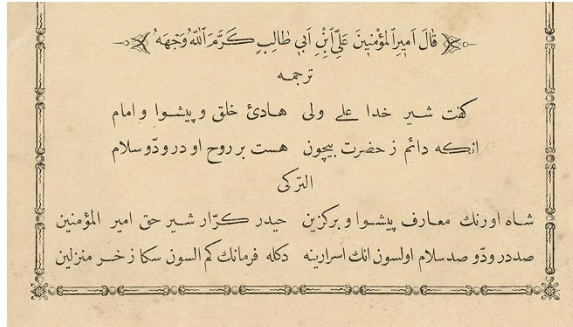 قَالَ اَمِيرُ الْمُؤْمِنِينَ عَلِيُّ ابْنُ اَبِي طَالِبٍ كَرَّمَ اللّٰهُ وَجْهَهُ
ترجمه
كفت شير خدا على ولى هادئ خلق و پيشوا و امام
انكه دائم ز حضرت بيچون هست بر روح او درود و سلام
التركى
شاه اورنك معارف پيشوا و بركزين حيدر كرّار شير حق امير المؤمنين
صد درود و صد سلام اولسون انك اسرارينه دكله فرمانك كم السون سكا زخر منزلين